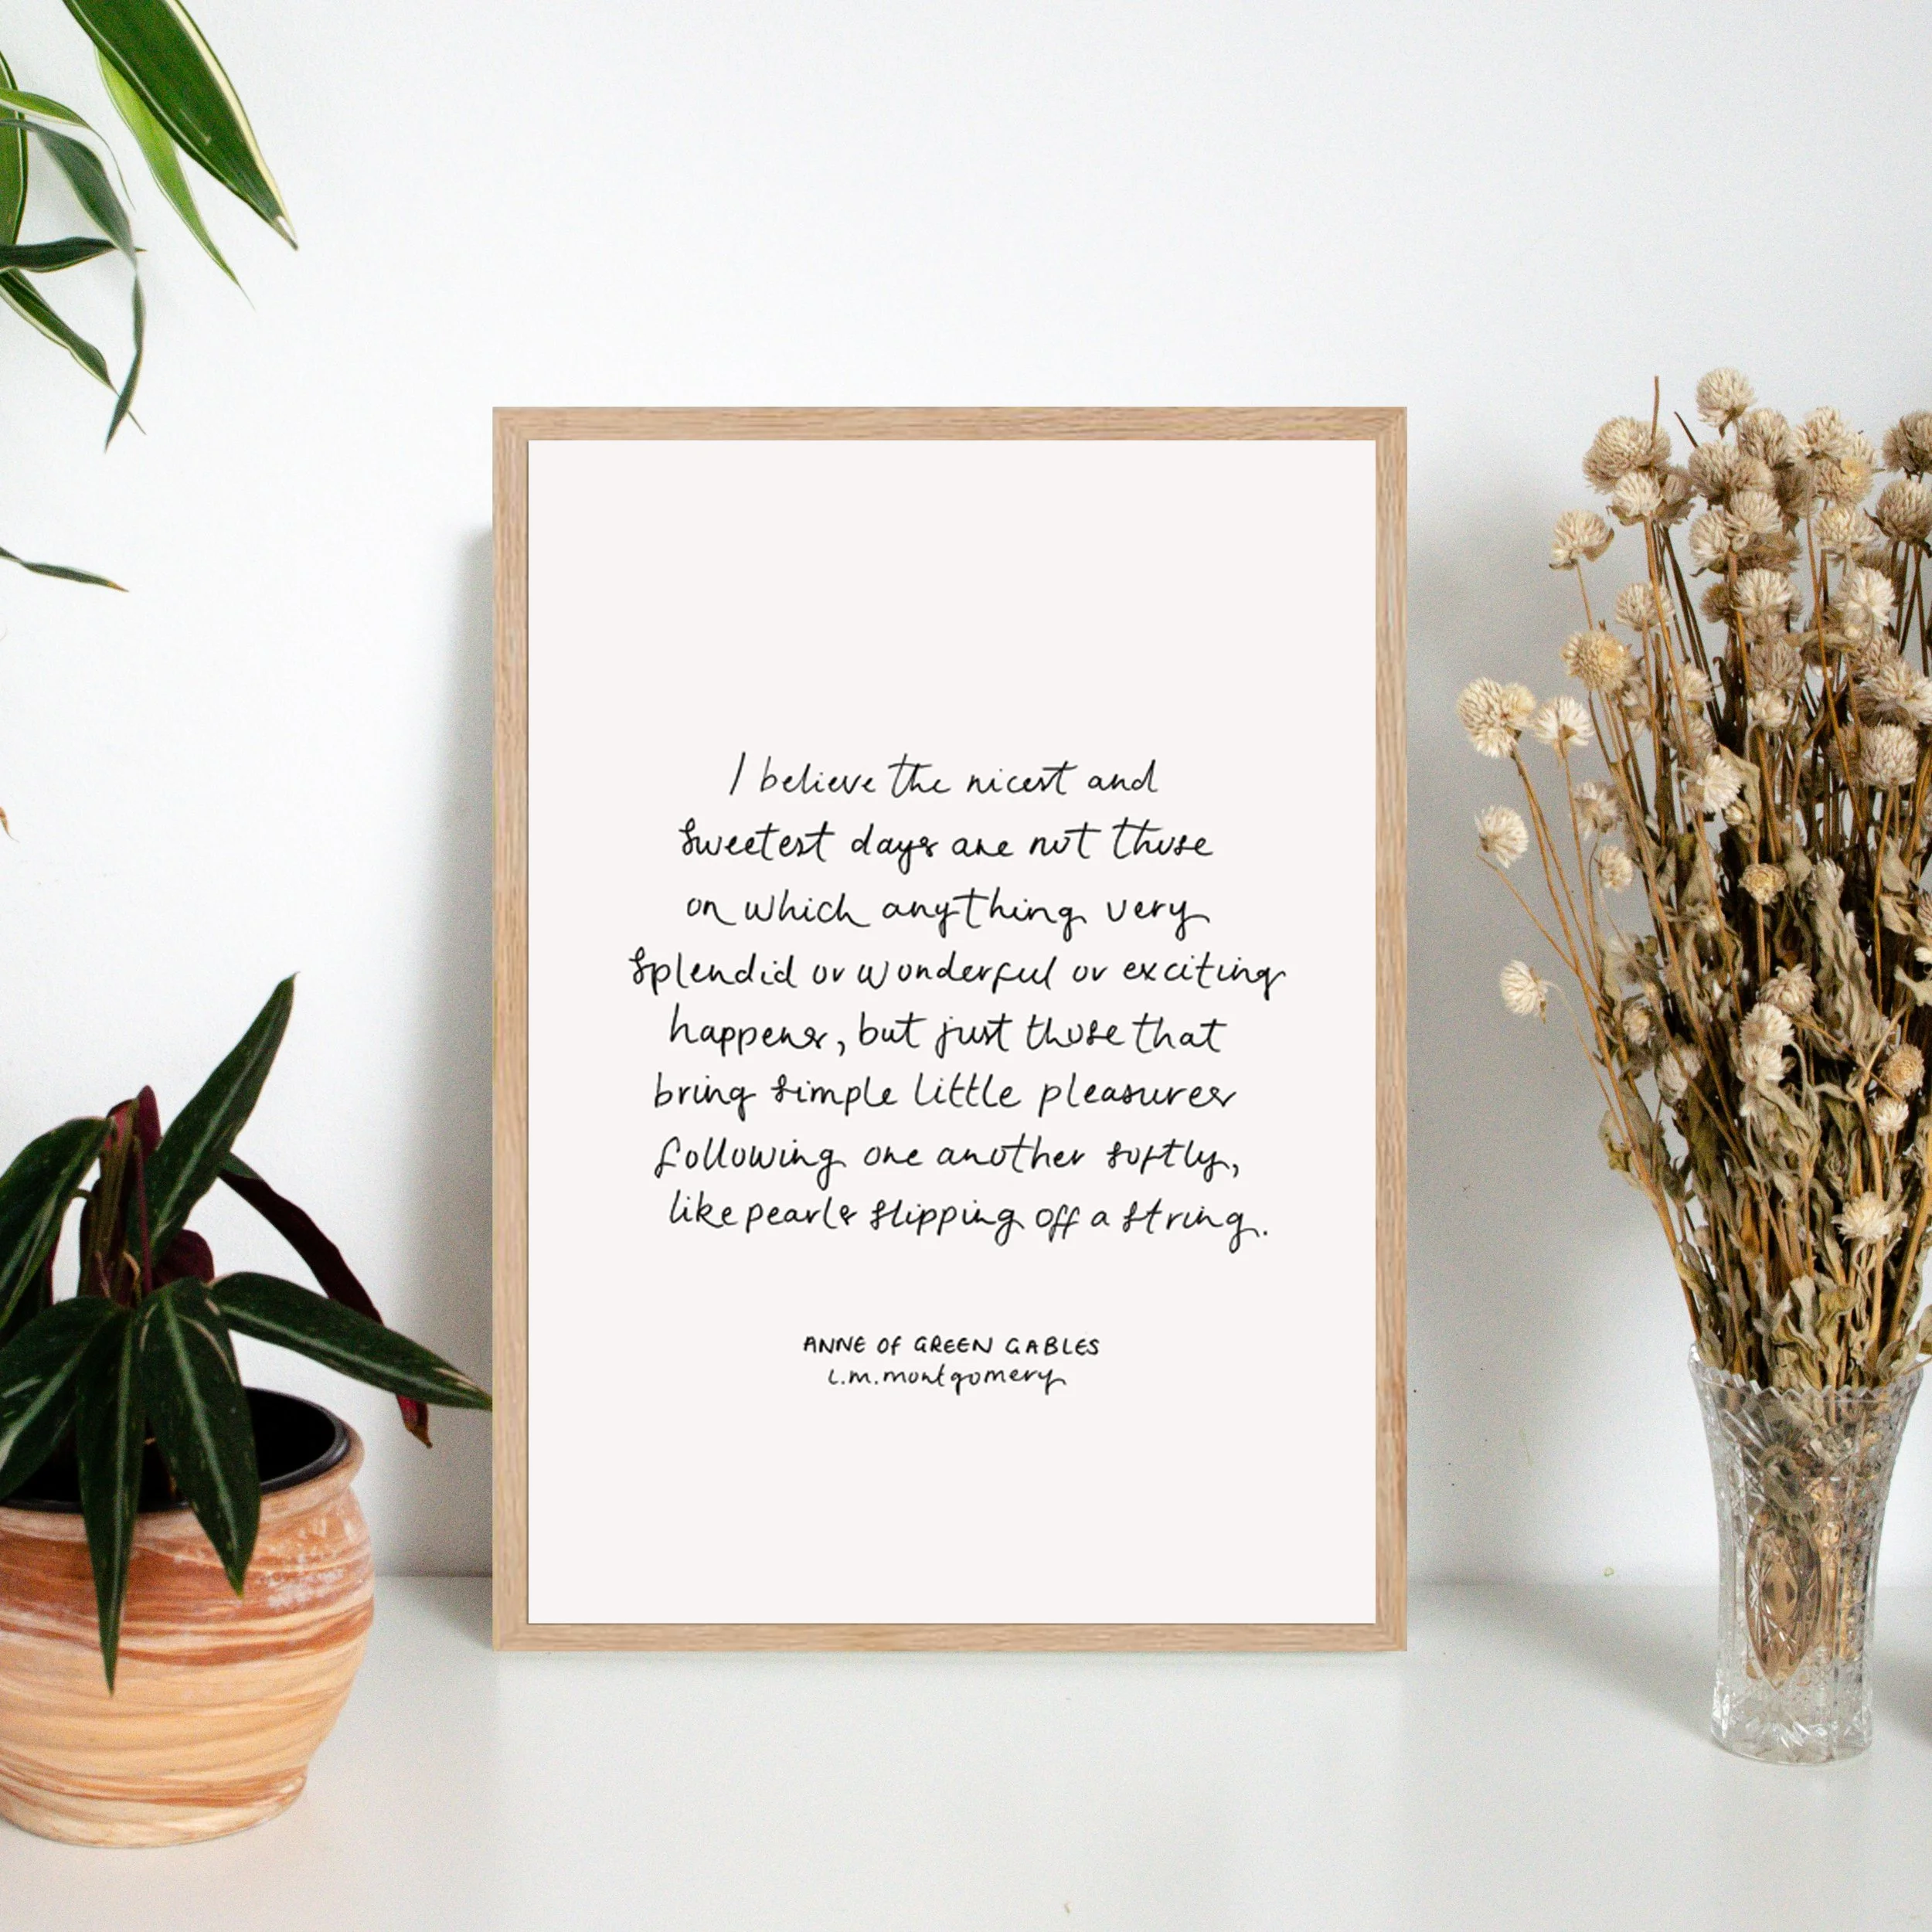 I believe the nicest and
sweetest days are not those
on which anything very
splendid or wonderful or exciting
happens, but just those that
bring simple little pleasures
following one another softly,
like pearls slipping off a string.
ANNE OF GREEN GABLES
L.M. montgomery